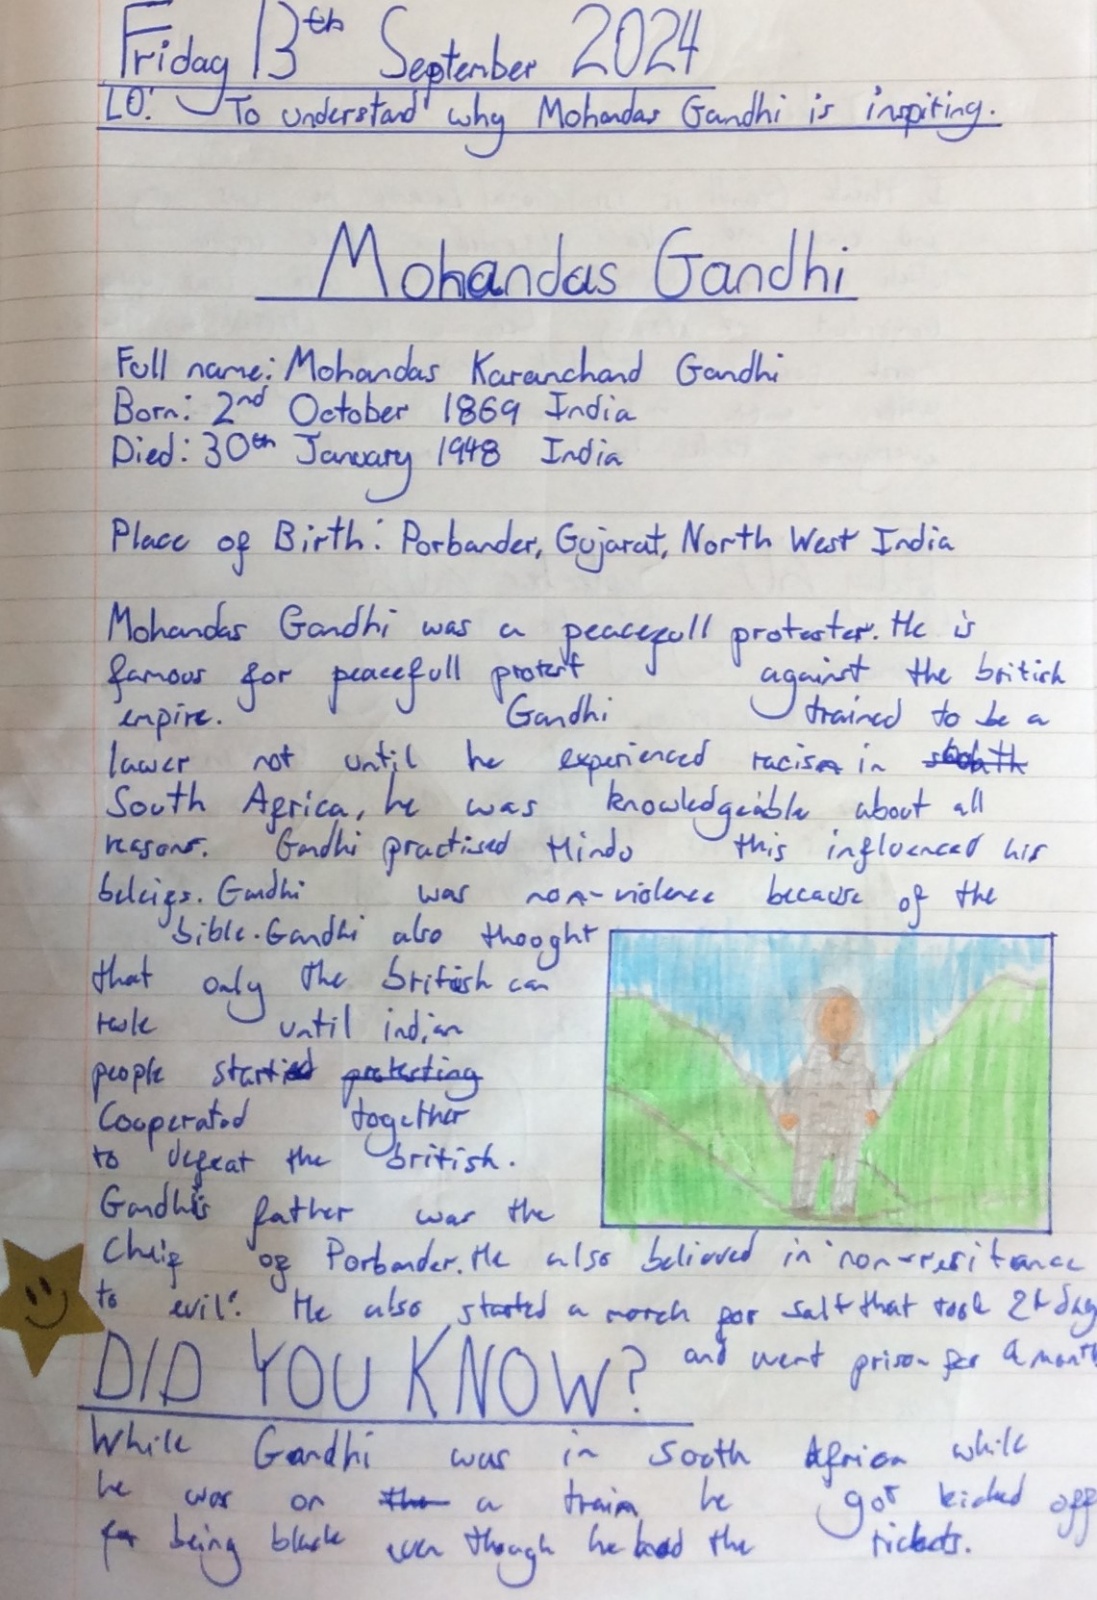 Friday 13th September 2024
LO: To understand why Mohandas Gandhi is inspiring.
Mohandas Gandhi
Full name: Mohandas Karanchand Gandhi
Born: 2nd October 1869 India
Died: 30th January 1948 India
Place of Birth: Porbander, Gujarat, North West India
Mohandas Gandhi was a peacefull protester. He is
famous for peacefull protest against the british
empire. Gandhi trained to be a
lawer not until he experienced racism in
South Africa, he was knowledgeable about all
reasons. Gandhi practised Hindu this influenced his
beleifs. Gandhi was non-violence because of the
bible. Gandhi also thought
that only the british can
rule until indian
people started protesting
Cooperated together
to defeat the british.
Gandhi's father was the
Cheif of Porbander. He also believed in 'non-resitance
to evil'. He also started a march for salt that took 24 days
and went prison for a month
DID YOU KNOW?
While Gandhi was in South Africa while
he was on the a train he got kicked off
for being black even though he had the tickets.